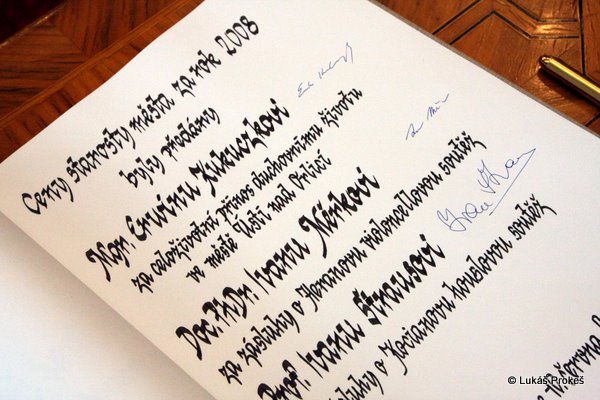 Ceny starosty města za rok 2008
byly předány
Mgr. Erwinu Kukuczkovi
za celoživotní přínos duchovnímu životu
ve městě Ústí nad Orlicí
Doc. PhDr. Ivanu Měrkovi
za zásluhy o Heranovu violoncellovou soutěž
Prof. Ivanu Štrausovi
zásluhy o Kocianovu houslovou soutěž
© Lukáš Prokeš